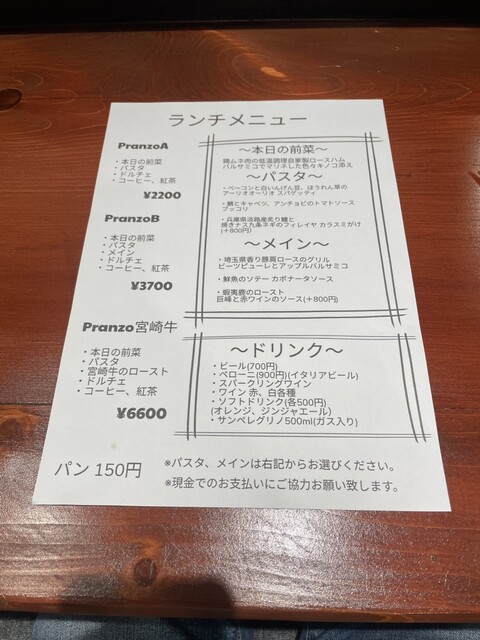 ランチメニュー
PranzoA
・本日の前菜
・パスタ
・ドルチェ
・コーヒー、紅茶
¥2200
PranzoB
・本日の前菜
・パスタ
・メイン
・ドルチェ
・コーヒー、紅茶
¥3700
Pranzo宮崎牛
・本日の前菜
・パスタ
・宮崎牛のロースト
・ドルチェ
・コーヒー、紅茶
¥6600
パン 150円
〜本日の前菜〜
鶏ムネ肉の低温調理自家製ロースハム
バルサミコでマリネした色々キノコ添え
〜パスタ〜
・ベーコンと白いんげん豆、ほうれん草の
アーリオオーリオ スパゲッティ
・鯖とキャベツ、アンチョビのトマトソース
ブッコリ
・兵庫県淡路産炙り鱧と
焼きナス九条ネギのフィレイヤ カラスミがけ
(+800円)
〜メイン〜
・埼玉県香り豚肩ロースのグリル
ビーツピューレとアップルバルサミコ
・鮮魚のソテー カポナータソース
・蝦夷鹿のロースト
巨峰と赤ワインのソース(+800円)
〜ドリンク〜
・ビール(700円)
・ペローニ(900円)(イタリアビール)
・スパークリングワイン
・ワイン 赤、白各種
・ソフトドリンク(各500円)
(オレンジ、ジンジャエール)
・サンペレグリノ500ml(ガス入り)
※パスタ、メインは右記からお選びください。
※現金でのお支払いにご協力お願い致します。